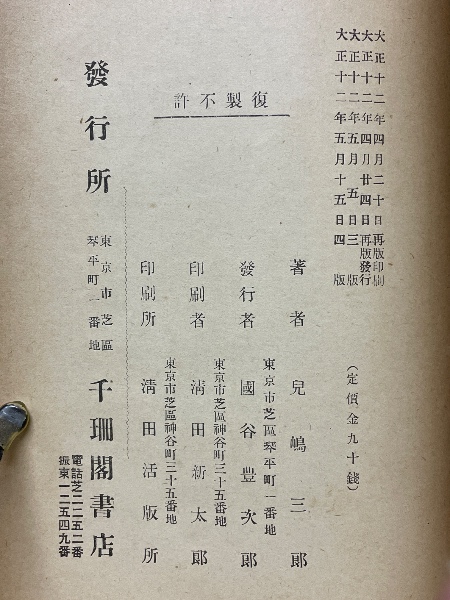 大正十二年四月二十日再版印刷
大正十二年四月廿四日再版發行
大正十二年五月五日三版
大正十二年五月十五日四版
(定價金九十錢)
復製不許
著者 兒嶋三郎
東京市芝區琴平町一番地
發行者 國谷豊次郎
東京市芝區神谷町三十五番地
印刷者 淸田新太郎
東京市芝區神谷町三十五番地
印刷所 淸田活版所
發行所
東京市芝區
琴平町一番地
千珊閣書店
電話芝二二五二番
振東一二五四九番